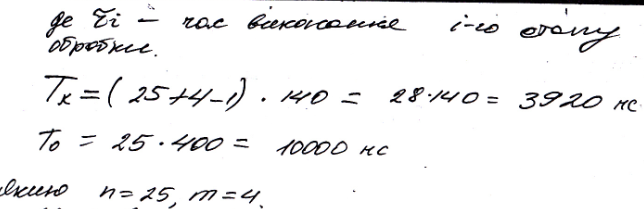 де τi – час виконання i-го етапу
обробки.
Tк = ( 25+4-1) · 140 = 28·140 = 3920 нс
To = 25·400 = 10000 нс
якщо n=25, m=4.